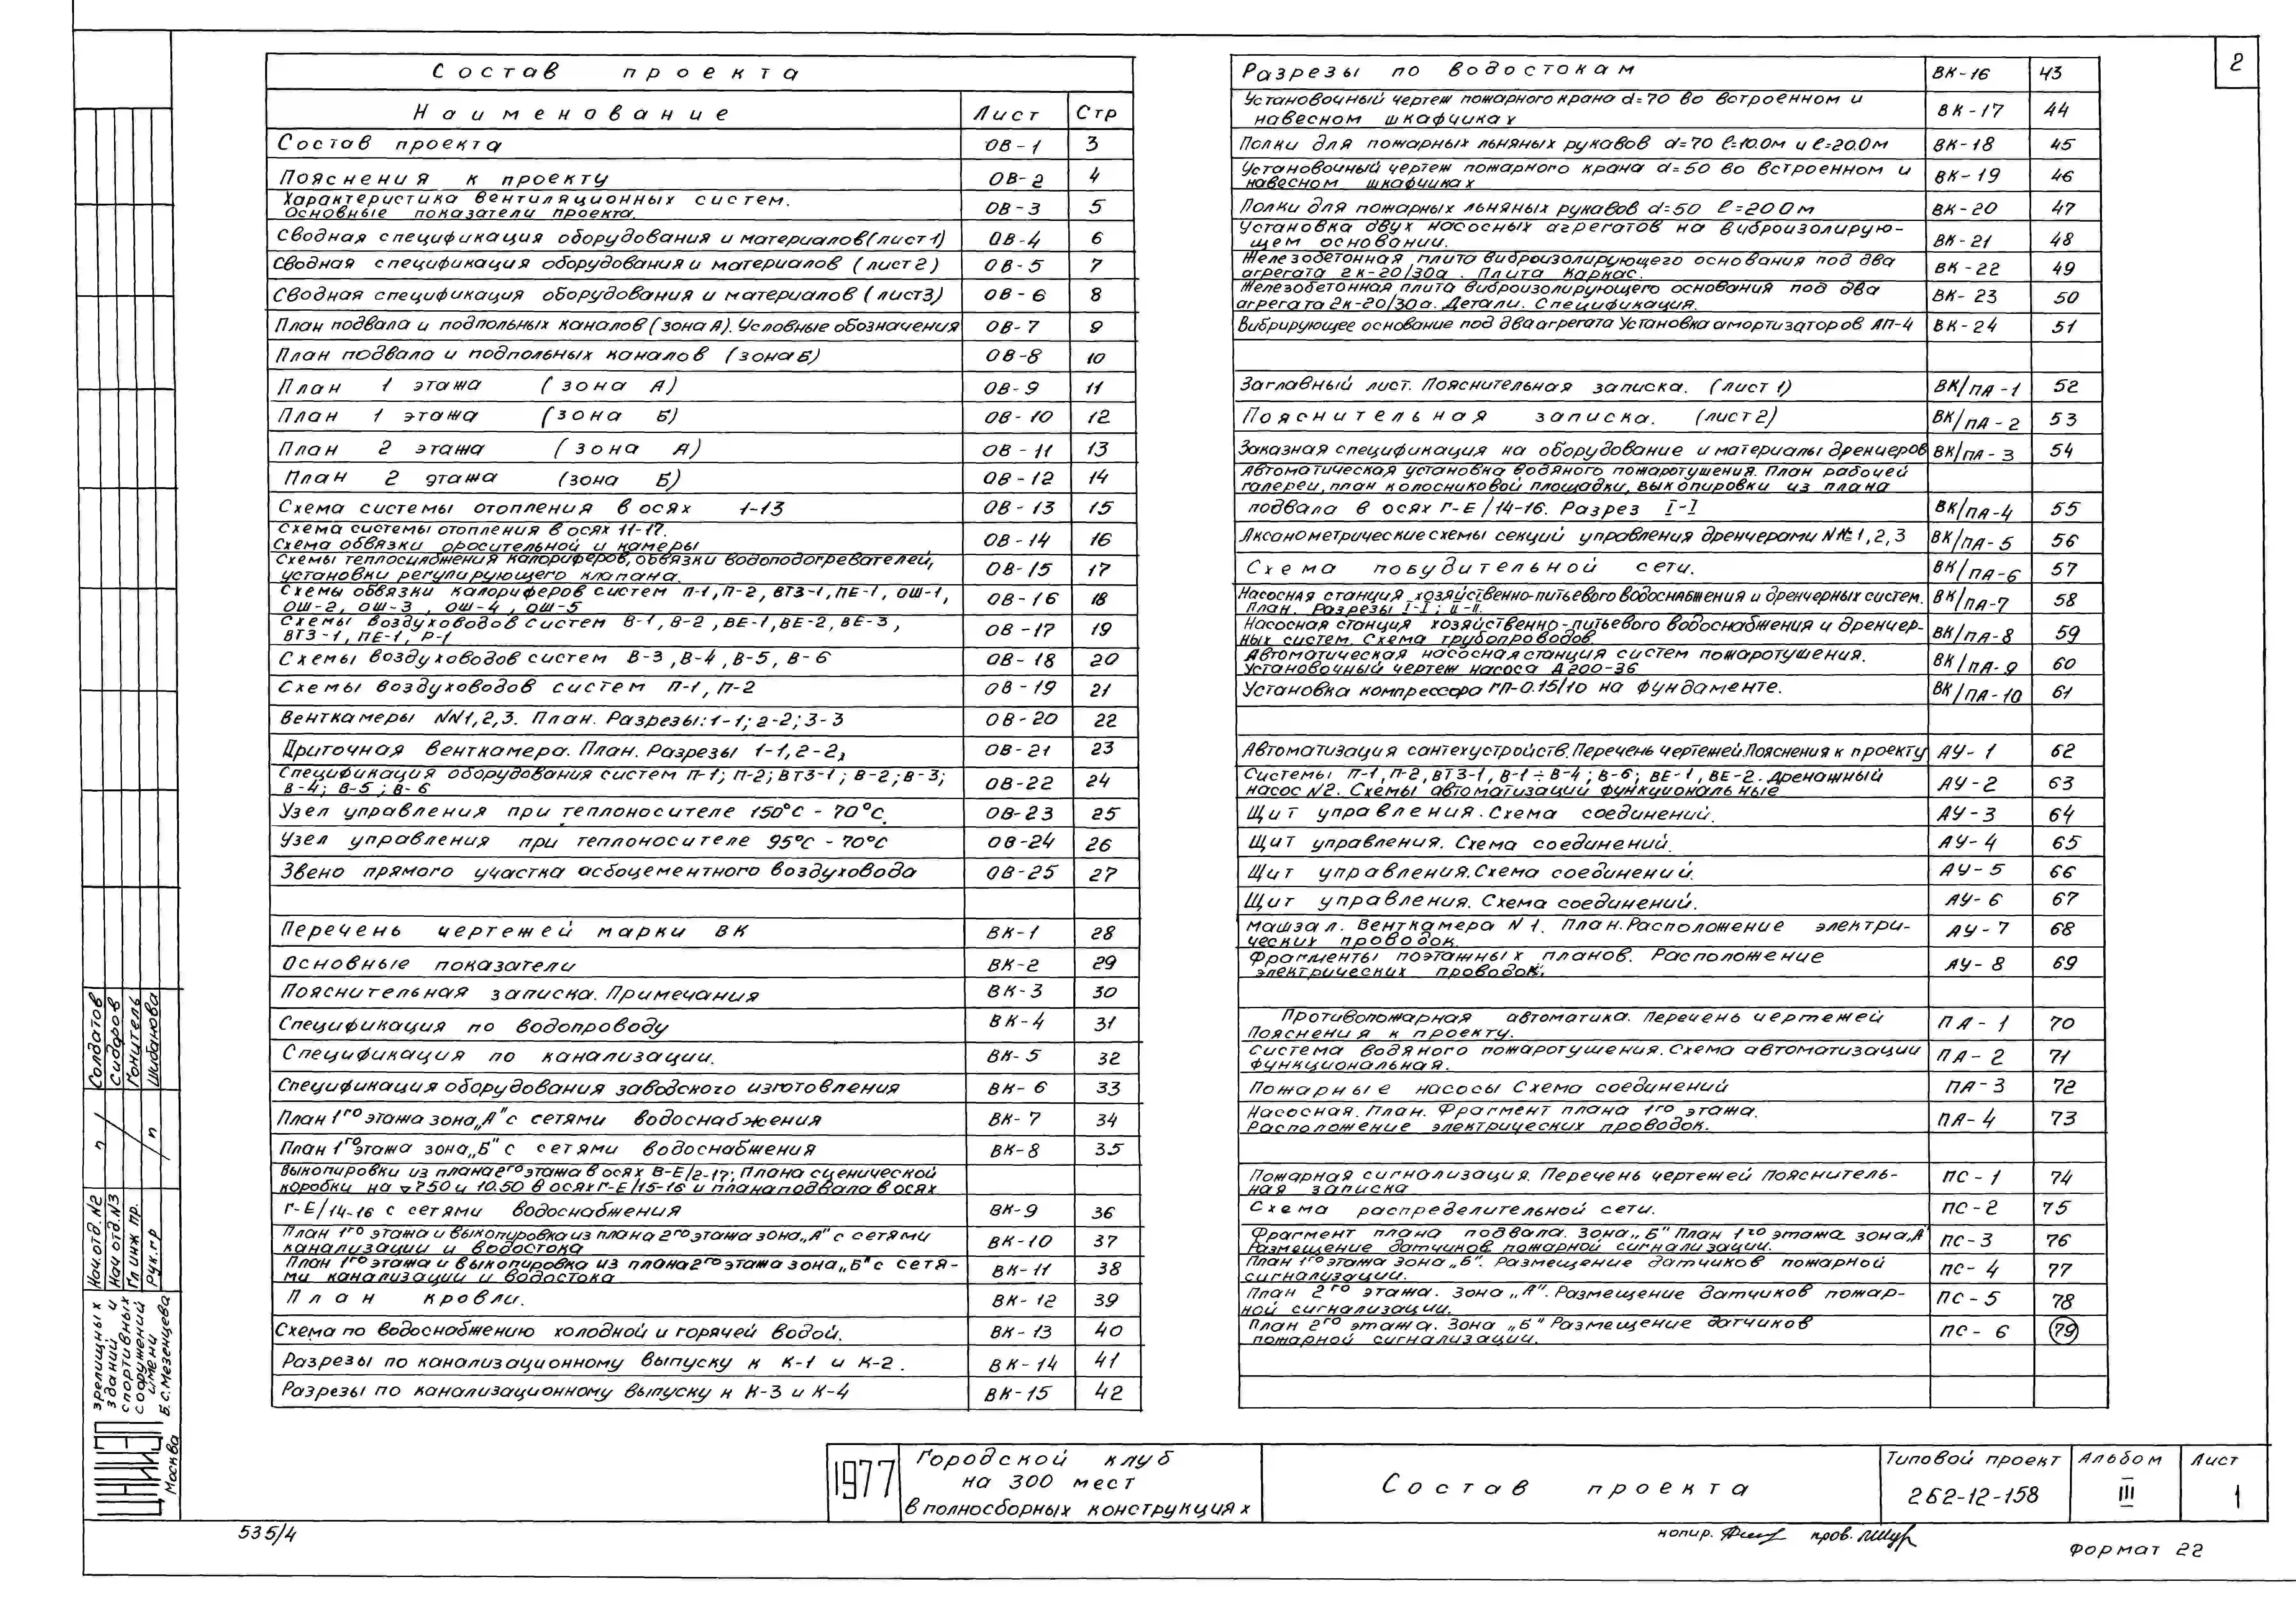 2
Состав проекта
Наименование Лист Стр
Состав проекта ОВ-1 3
Пояснения к проекту ОВ-2 4
Характеристика вентиляционных систем.
Основные показатели проекта. ОВ-3 5
Сводная спецификация оборудования и материалов (лист 1) ОВ-4 6
Сводная спецификация оборудования и материалов (лист 2) ОВ-5 7
Сводная спецификация оборудования и материалов (лист 3) ОВ-6 8
План подвала и подпольных каналов (зона А). Условные обозначения ОВ-7 9
План подвала и подпольных каналов (зона Б) ОВ-8 10
План 1 этажа (зона А) ОВ-9 11
План 1 этажа (зона Б) ОВ-10 12
План 2 этажа (зона А) ОВ-11 13
План 2 этажа (зона Б) ОВ-12 14
Схема системы отопления в осях 1-13 ОВ-13 15
Схема системы отопления в осях 11-17.
Схема обвязки оросительной и камеры ОВ-14 16
Схемы теплоснабжения калориферов, обвязки водоподогревателей,
установки регулирующего клапана. ОВ-15 17
Схемы обвязки калориферов систем П-1, П-2, ВТЗ-1, ПЕ-1, ОШ-1,
ОШ-2, ОШ-3, ОШ-4, ОШ-5 ОВ-16 18
Схемы воздуховодов систем В-1, В-2, ВЕ-1, ВЕ-2, ВЕ-3,
ВТЗ-1, ПЕ-1, Р-1 ОВ-17 19
Схемы воздуховодов систем В-3, В-4, В-5, В-6 ОВ-18 20
Схемы воздуховодов систем П-1, П-2 ОВ-19 21
Венткамеры NN1,2,3. План. Разрезы: 1-1; 2-2; 3-3 ОВ-20 22
Приточная венткамера. План. Разрезы 1-1, 2-2, ОВ-21 23
Спецификация оборудования систем П-1; П-2; ВТЗ-1; В-2; В-3;
В-4; В-5; В-6 ОВ-22 24
Узел управления при теплоносителе 150°С - 70°С. ОВ-23 25
Узел управления при теплоносителе 95°С - 70°С ОВ-24 26
Звено прямого участка асбоцементного воздуховода ОВ-25 27
Перечень чертежей марки ВК ВК-1 28
Основные показатели ВК-2 29
Пояснительная записка. Примечания ВК-3 30
Спецификация по водопроводу ВК-4 31
Спецификация по канализации. ВК-5 32
Спецификация оборудования заводского изготовления ВК-6 33
План 1го этажа зона „А" с сетями водоснабжения ВК-7 34
План 1го этажа зона „Б" с сетями водоснабжения ВК-8 35
Выкопировки из плана 2го этажа в осях В-Е/2-17; Плана сценической
коробки на ▽7.50 и 10.50 в осях Г-Е/15-16 и плана подвала в осях
Г-Е/14-16 с сетями водоснабжения ВК-9 36
План 1го этажа и выкопировка из плана 2го этажа зона „А" с сетями
канализации и водостока ВК-10 37
План 1го этажа и выкопировка из плана 2го этажа зона „Б" с сетя-
ми канализации и водостока ВК-11 38
План кровли. ВК-12 39
Схема по водоснабжению холодной и горячей водой. ВК-13 40
Разрезы по канализационному выпуску к К-1 и К-2. ВК-14 41
Разрезы по канализационному выпуску к К-3 и К-4 ВК-15 42
Разрезы по водостокам ВК-16 43
Установочный чертеж пожарного крана d=70 во встроенном и
навесном шкафчиках ВК-17 44
Полки для пожарных льняных рукавов d=70 ℓ=10.0м и ℓ=20.0м ВК-18 45
Установочный чертеж пожарного крана d=50 во встроенном и
навесном шкафчиках ВК-19 46
Полки для пожарных льняных рукавов d=50 ℓ=20.0м ВК-20 47
Установка двух насосных агрегатов на виброизолирую-
щем основании. ВК-21 48
Железобетонная плита виброизолирующего основания под два
агрегата 2К-20/30а. Плита Каркас. ВК-22 49
Железобетонная плита виброизолирующего основания под два
агрегата 2К-20/30а. Детали. Спецификация. ВК-23 50
Вибрирующее основание под два агрегата Установка амортизаторов АП-4 ВК-24 51
Заглавный лист. Пояснительная записка. (лист 1) ВК/ПА-1 52
Пояснительная записка. (лист 2) ВК/ПА-2 53
Заказная спецификация на оборудование и материалы дренчеров ВК/ПА-3 54
Автоматическая установка водяного пожаротушения. План рабочей
галереи, план колосниковой площадки, выкопировки из плана
подвала в осях Г-Е/14-16. Разрез I-I ВК/ПА-4 55
Аксанометрические схемы секций управления дренчерами NN 1,2,3 ВК/ПА-5 56
Схема побудительной сети. ВК/ПА-6 57
Насосная станция хозяйственно-питьевого водоснабжения и дренчерных систем.
План. Разрезы I-I; II-II. ВК/ПА-7 58
Насосная станция хозяйственно-питьевого водоснабжения и дренчер-
ных систем. Схема трубопроводов. ВК/ПА-8 59
Автоматическая насосная станция систем пожаротушения.
Установочный чертеж насоса Д200-36 ВК/ПА-9 60
Установка компрессора ГП-0.15/10 на фундаменте. ВК/ПА-10 61
Автоматизация сантехустройств. Перечень чертежей. Пояснения к проекту АУ-1 62
Системы П-1, П-2, ВТЗ-1, В-1÷В-4; В-6; ВЕ-1, ВЕ-2. Дренажный
насос N2. Схемы автоматизации функциональные АУ-2 63
Щит управления. Схема соединений. АУ-3 64
Щит управления. Схема соединений. АУ-4 65
Щит управления. Схема соединений. АУ-5 66
Щит управления. Схема соединений. АУ-6 67
Машзал. Венткамера N1. План. Расположение электри-
ческих проводок. АУ-7 68
Фрагменты поэтажных планов. Расположение
электрических проводок. АУ-8 69
Противопожарная автоматика. Перечень чертежей
Пояснения к проекту. ПА-1 70
Система водяного пожаротушения. Схема автоматизации
функциональная. ПА-2 71
Пожарные насосы Схема соединений ПА-3 72
Насосная. План. Фрагмент плана 1го этажа.
Расположение электрических проводок. ПА-4 73
Пожарная сигнализация. Перечень чертежей Пояснитель-
ная записка ПС-1 74
Схема распределительной сети. ПС-2 75
Фрагмент плана подвала. Зона „Б" План 1го этажа зона „А"
Размещение датчиков пожарной сигнализации. ПС-3 76
План 1го этажа зона „Б". Размещение датчиков пожарной
сигнализации. ПС-4 77
План 2го этажа. Зона „А". Размещение датчиков пожар-
ной сигнализации. ПС-5 78
План 2го этажа. Зона „Б" Размещение датчиков
пожарной сигнализации. ПС-6 79
Нач.отд.N2 Солдатов
Нач отд.N3 Сидоров
Гл инж пр. Гонцитель
Рук.гр Шибанова
ЦНИИЭП
зрелищных
зданий и
спортивных
сооружений
имени
Б.С.Мезенцева
Москва
1977
Городской клуб
на 300 мест
в полносборных конструкциях
Состав проекта
Типовой проект
262-12-158
Альбом
III
Лист
1
535/4
копир. пров.
Формат 22